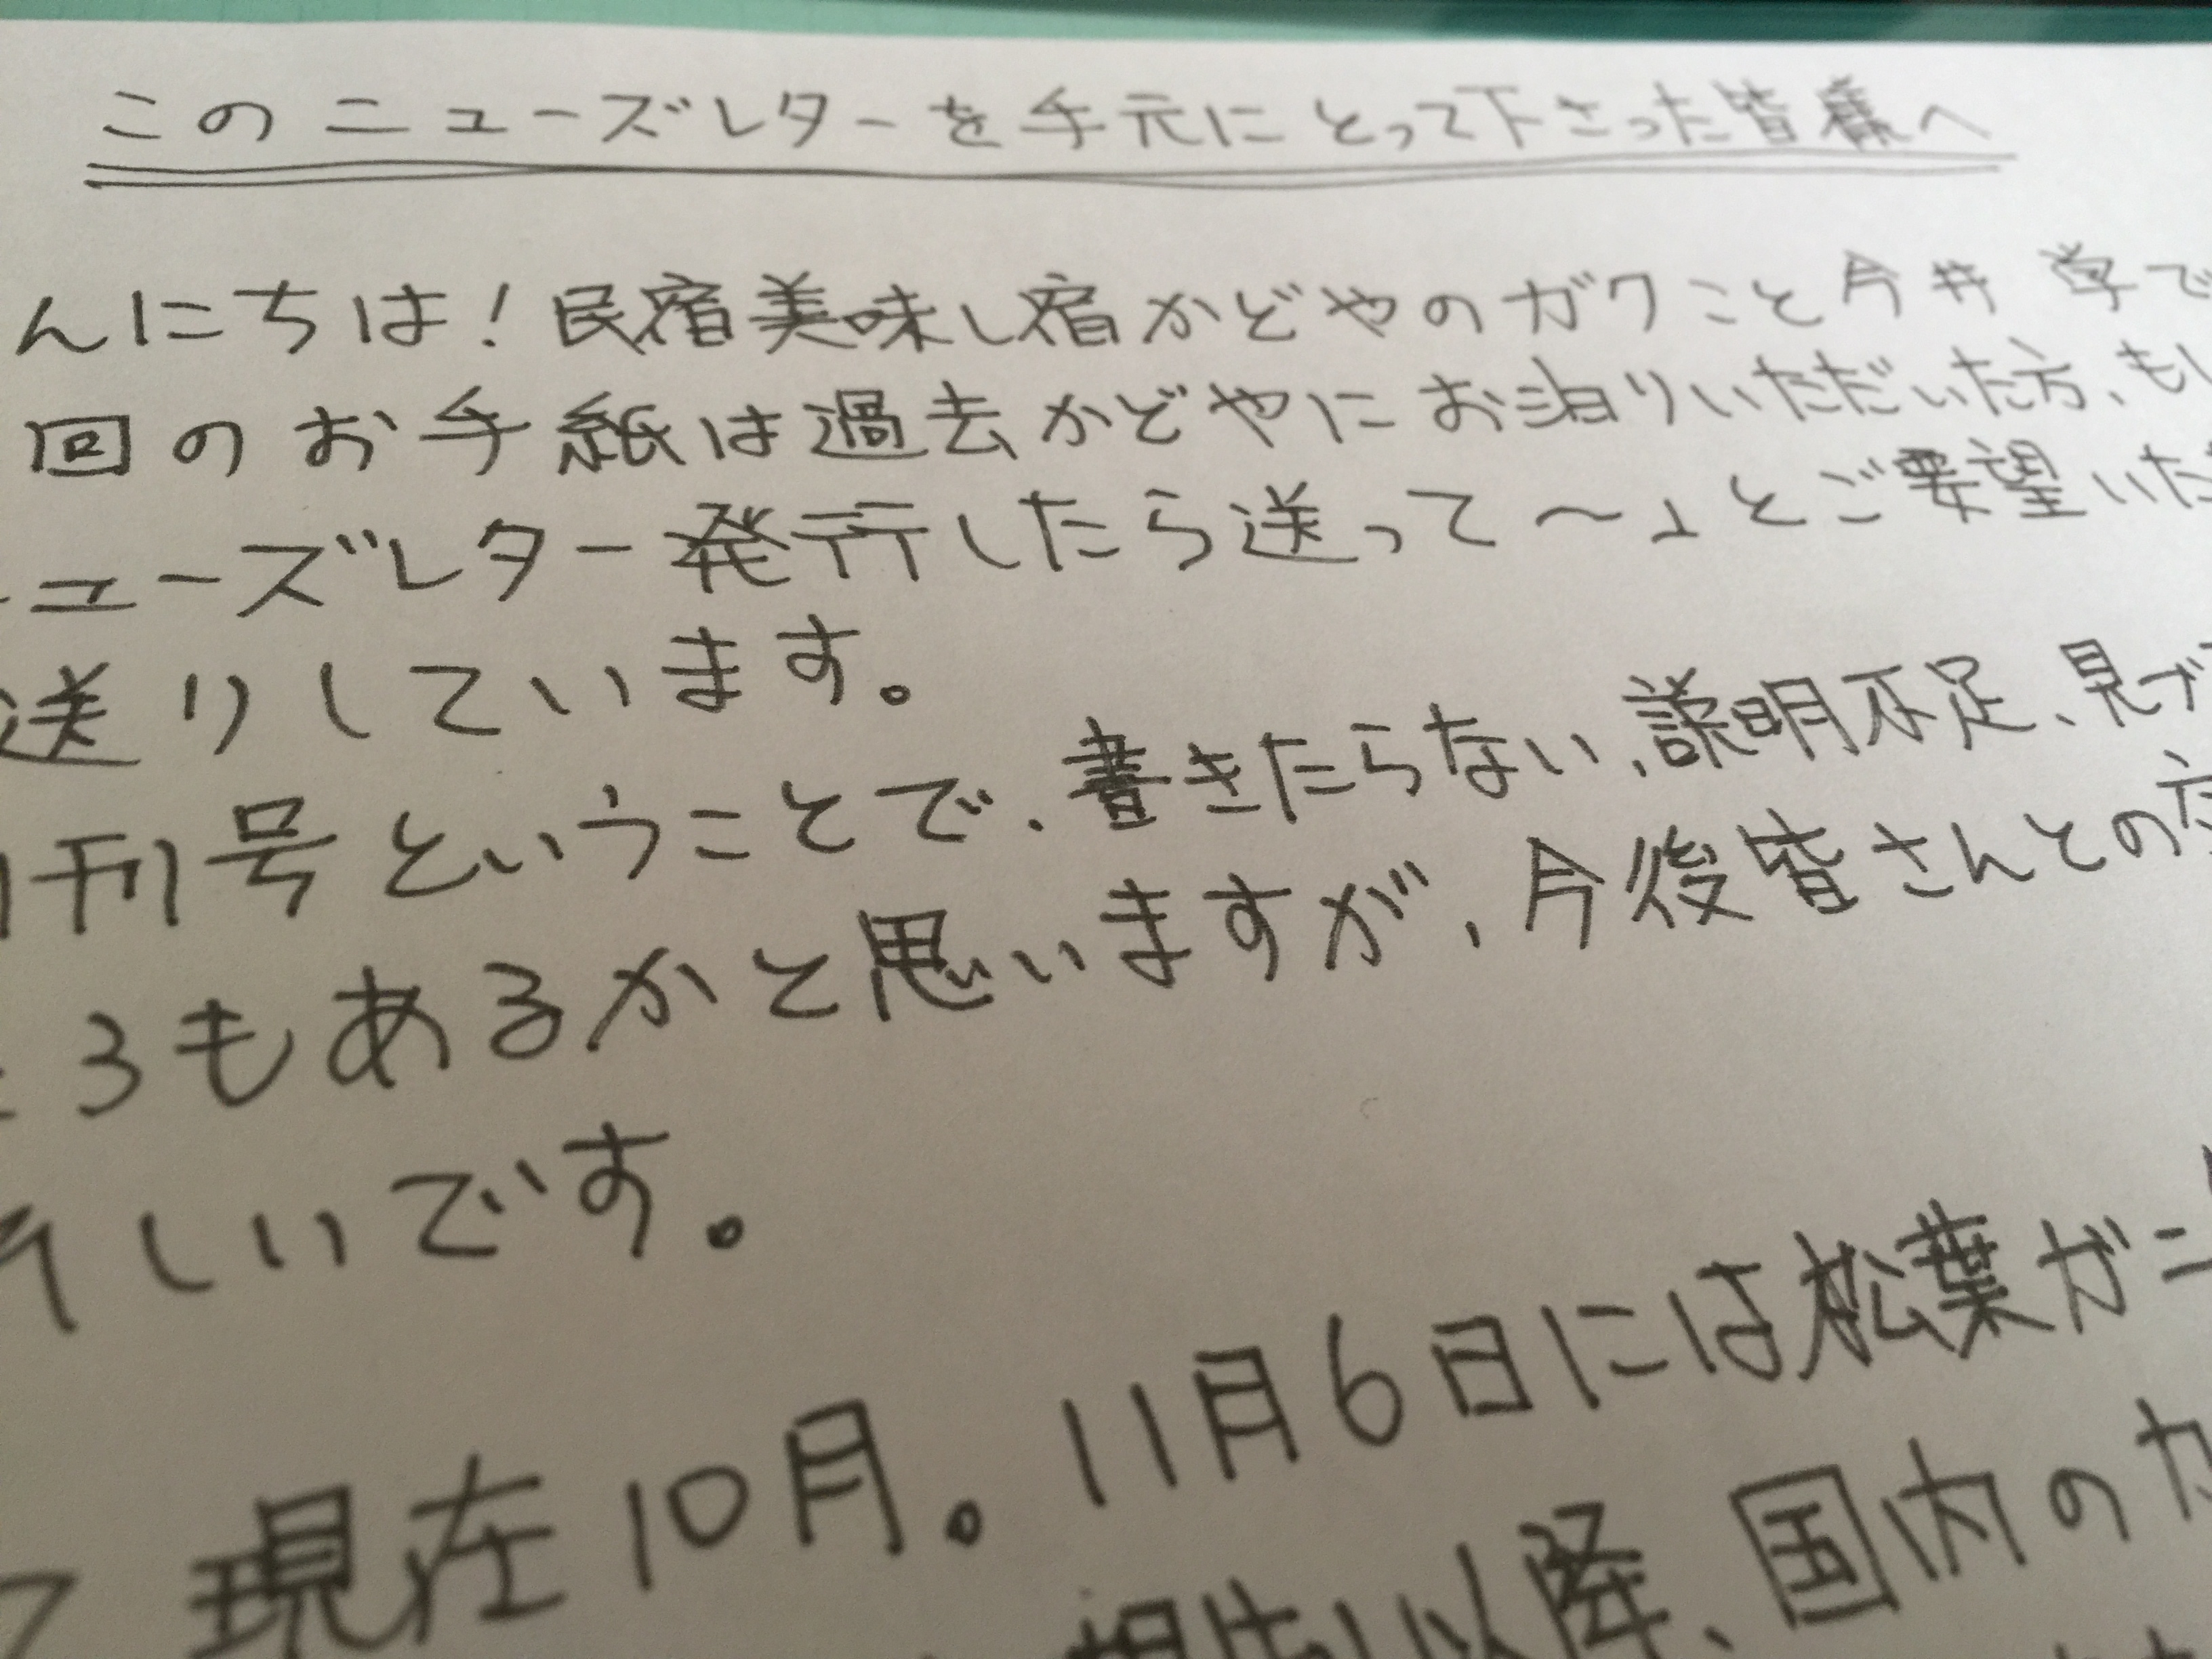 このニューズレターを手元にとって下さった皆様へ
んにちは!民宿美味し宿かどやのガクこと今井 学で
回のお手紙は過去かどやにお泊りいただいた方、もし
ニューズレター発行したら送って〜」とご要望いただ
送りしています。
刊号ということで、書きたらない、説明不足、見づ
ころもあるかと思いますが、今後皆さんとの
しいです。
現在10月。11月6日には松葉ガニ
以降、国内の